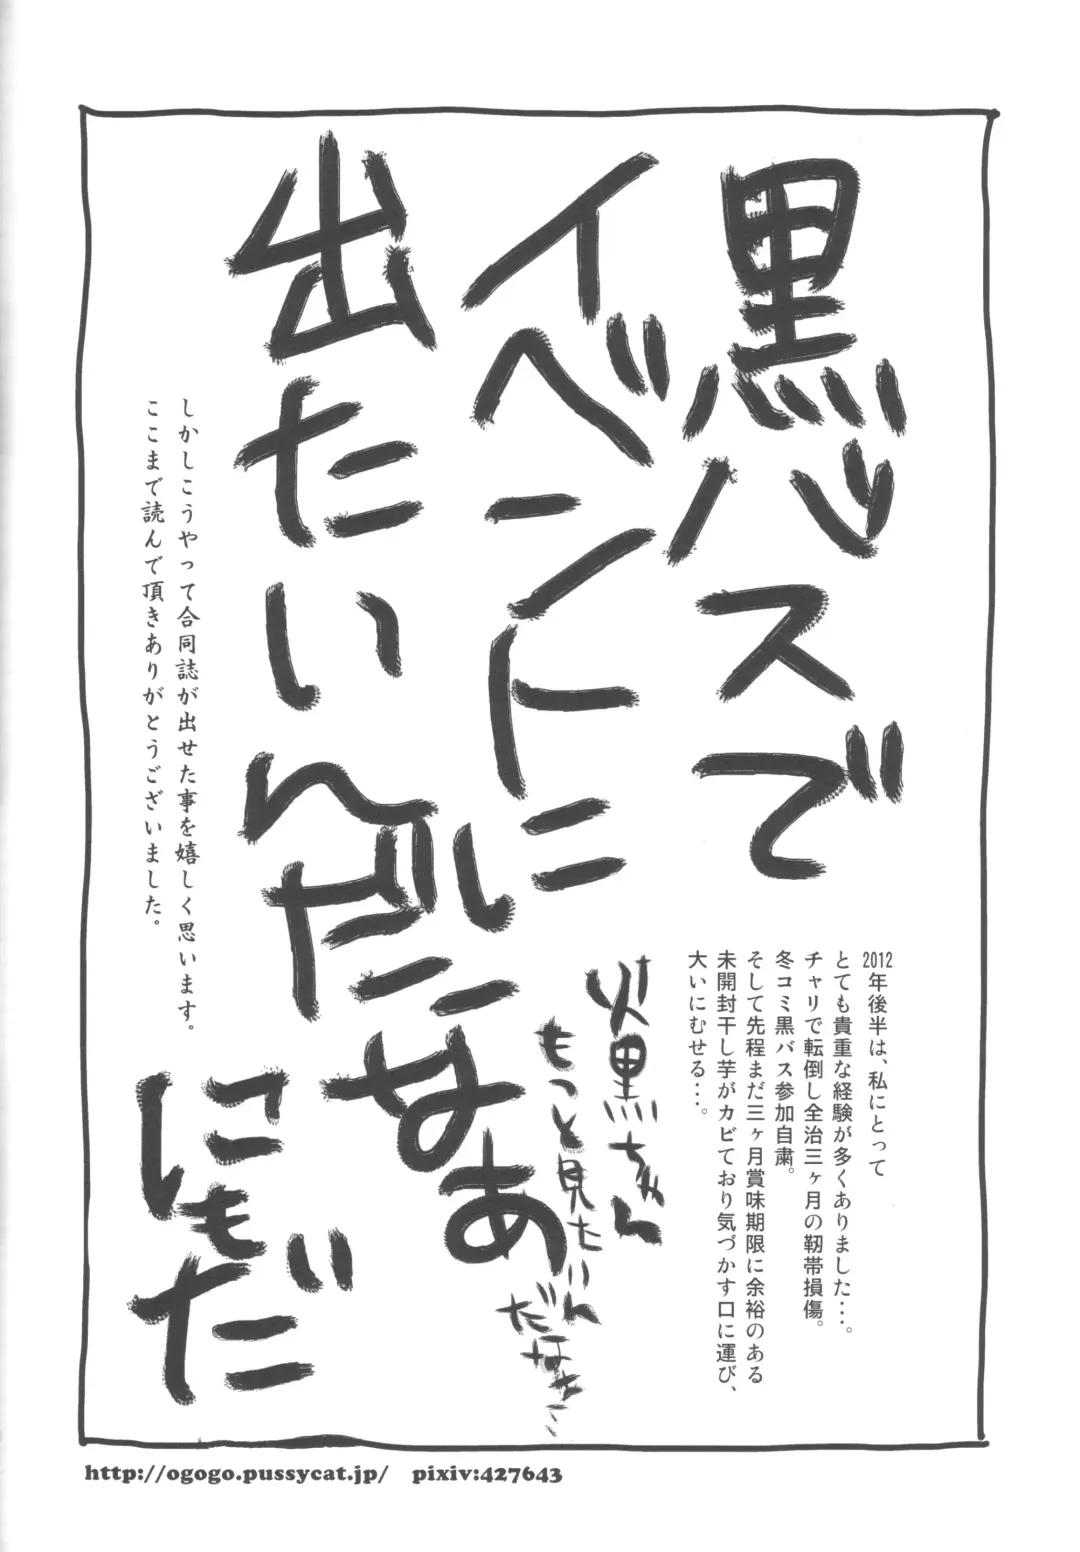 黒バスで
イベントに
出たいんだなあ
2012年後半は、私にとって
とても貴重な経験が多くありました･･･。
チャリで転倒し全治三ヶ月の靭帯損傷。
冬コミ黒バス参加自粛。
そして先程まだ三ヶ月賞味期限に余裕のある
未開封干し芋がカビており気づかす口に運び、
大いにむせる･･･。
火黒ちゃん
もっと見たいん
だなあ
しかしこうやって合同誌が出せた事を嬉しく思います。
ここまで読んで頂きありがとうございました。
にもだ
http://ogogo.pussycat.jp/ pixiv:427643